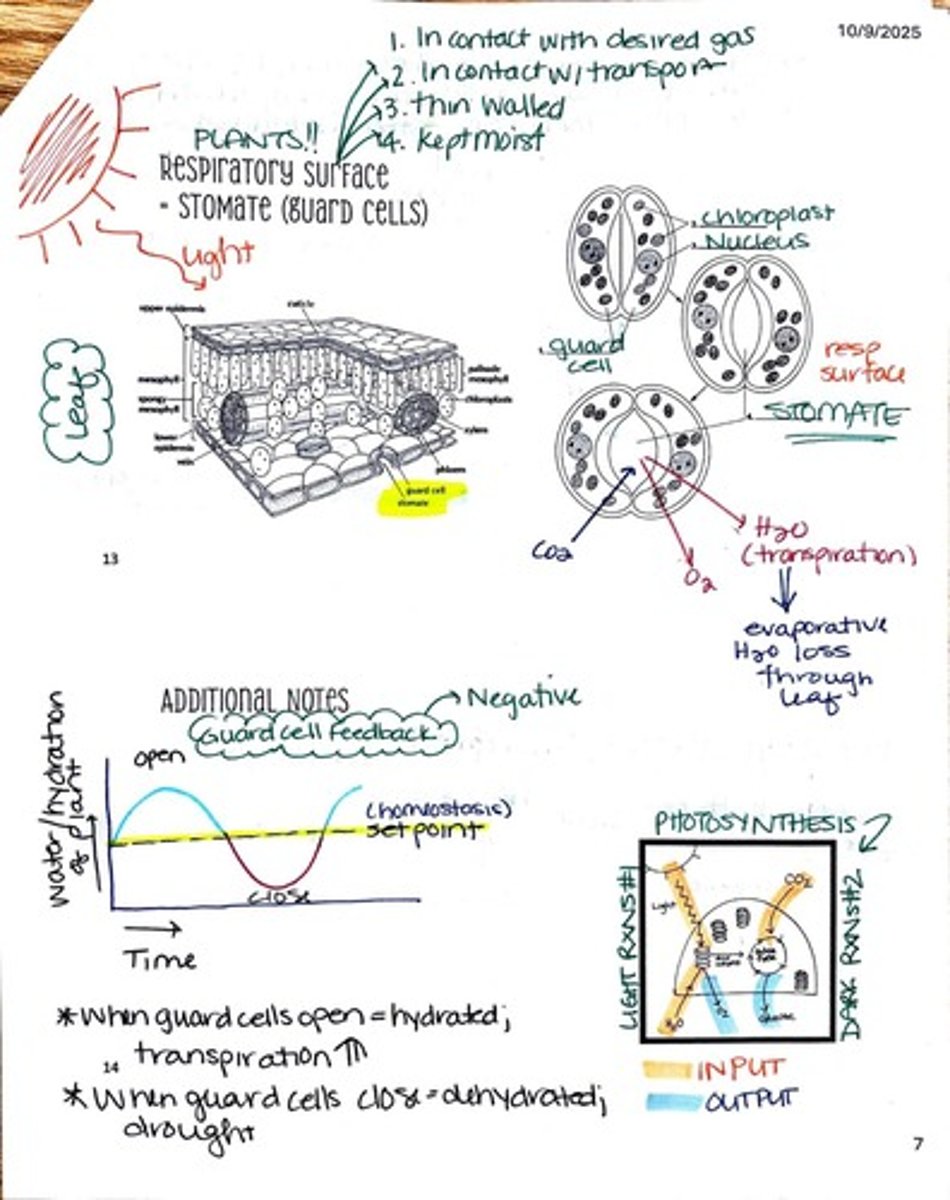 10/9/2025
1. In contact with desired gas
2. In contact w/ transport
3. thin walled
4. Kept moist
PLANTS!!
RESPIRATORY SURFACE
- STOMATE (GUARD CELLS)
Light
chloroplast
Nucleus
guard
cell
resp
surface
STOMATE
Leaf
upper epidermis
cuticle
mesophyll
spongy
mesophyll
lower
epidermis
vein
palisade
mesophyll
chloroplasts
xylem
phloem
guard cell
stomate
CO2
O2
H2O
(transpiration)
evaporative
H2O loss
through
leaf
13
ADDITIONAL NOTES
Negative
Guard cell Feedback
water/hydration
of plant
open
(homeostasis)
set point
close
Time
PHOTOSYNTHESIS
LIGHT RXNS #1
DARK RXNS #2
Light
CO2
H2O
O2
Glucose
INPUT
OUTPUT
*When guard cells open = hydrated;
transpiration ⇑
14
*When guard cells close = dehydrated;
drought
7